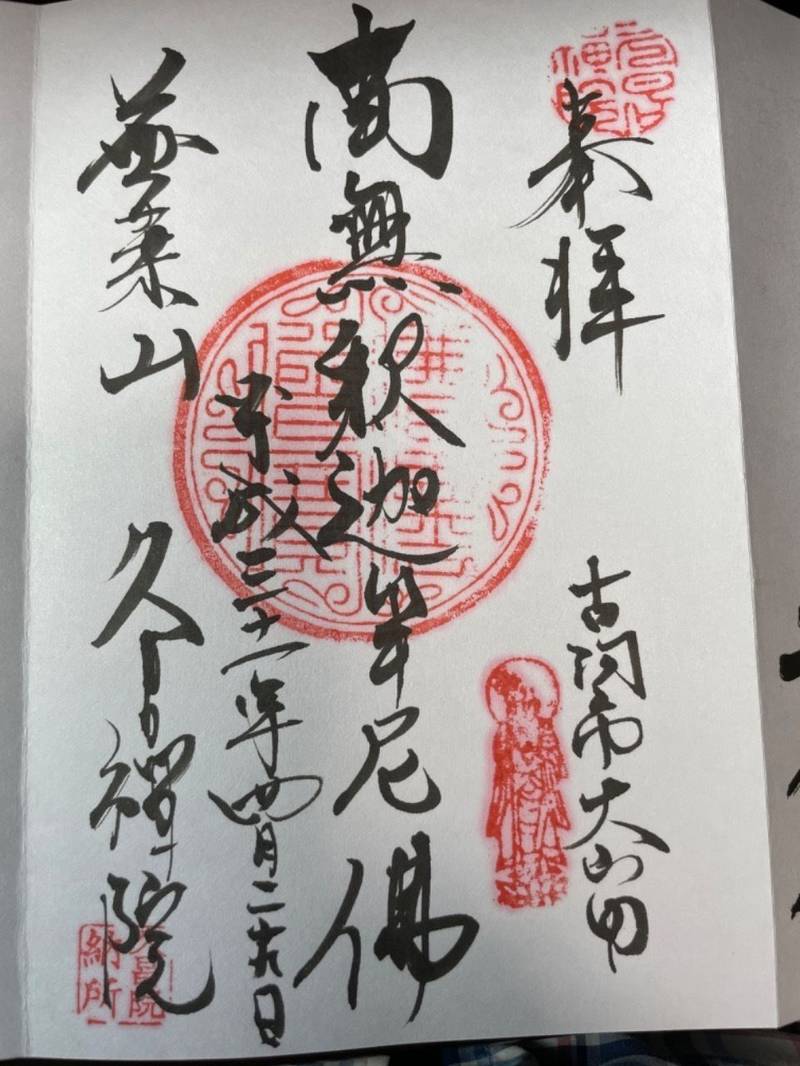 奉拝
古河市大山田
南無釈迦牟尼佛
平成三十一年四月
山 久昌禅院
納所